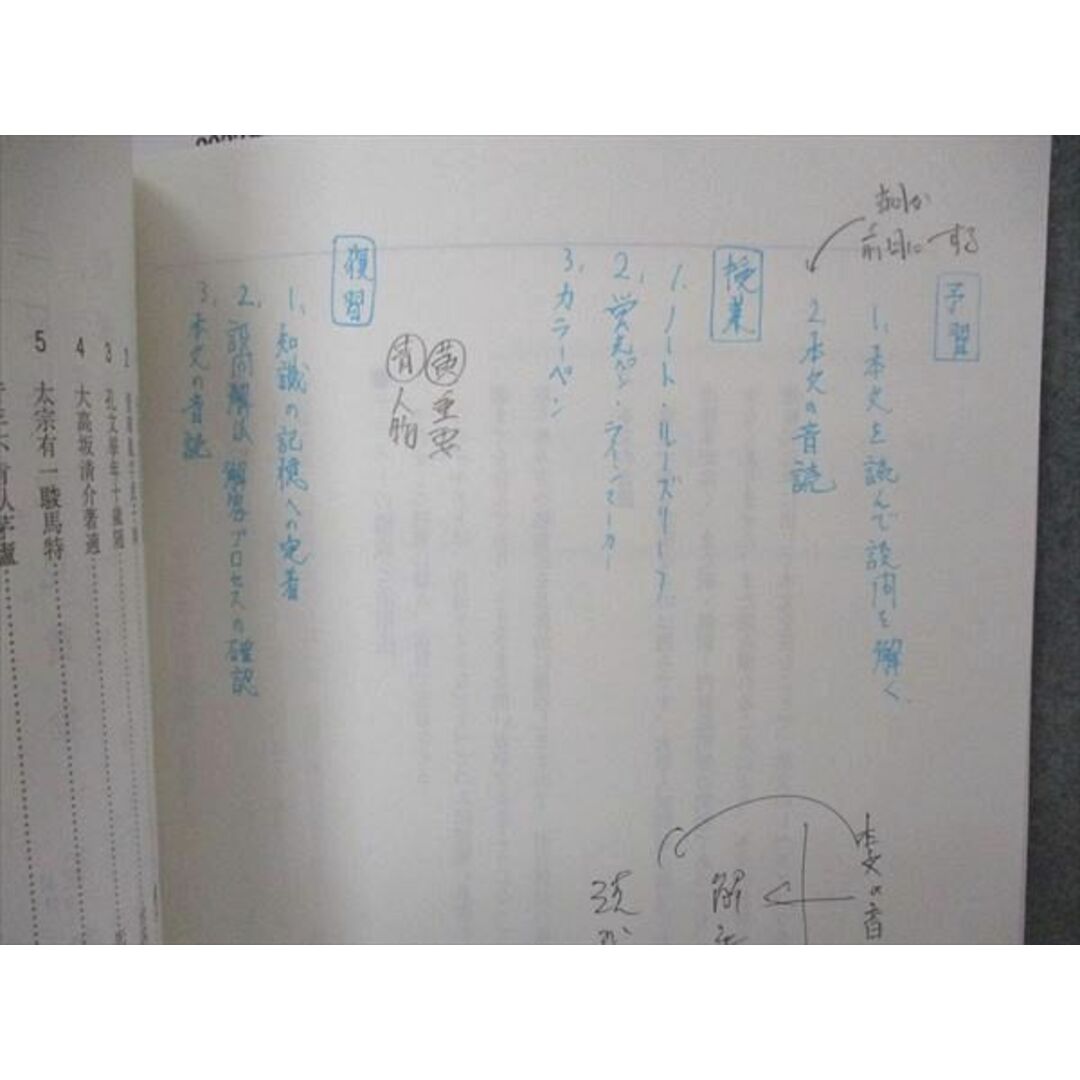 予習
1. 本文を読んで設問を解く
2. 本文の音読
前日にする
授業
1. ノート・ルーズリーフ
2. 蛍光ペン・ラインマーカー
3. カラーペン
黄 重要
青 人物
復習
1. 知識の記憶への定着
2. 設問解法、解答プロセスの確認
3. 本文の音読
本文の音
解
読
3 孔文擧年十歳随
4 大高坂清介著適
5 太宗有一駿馬特